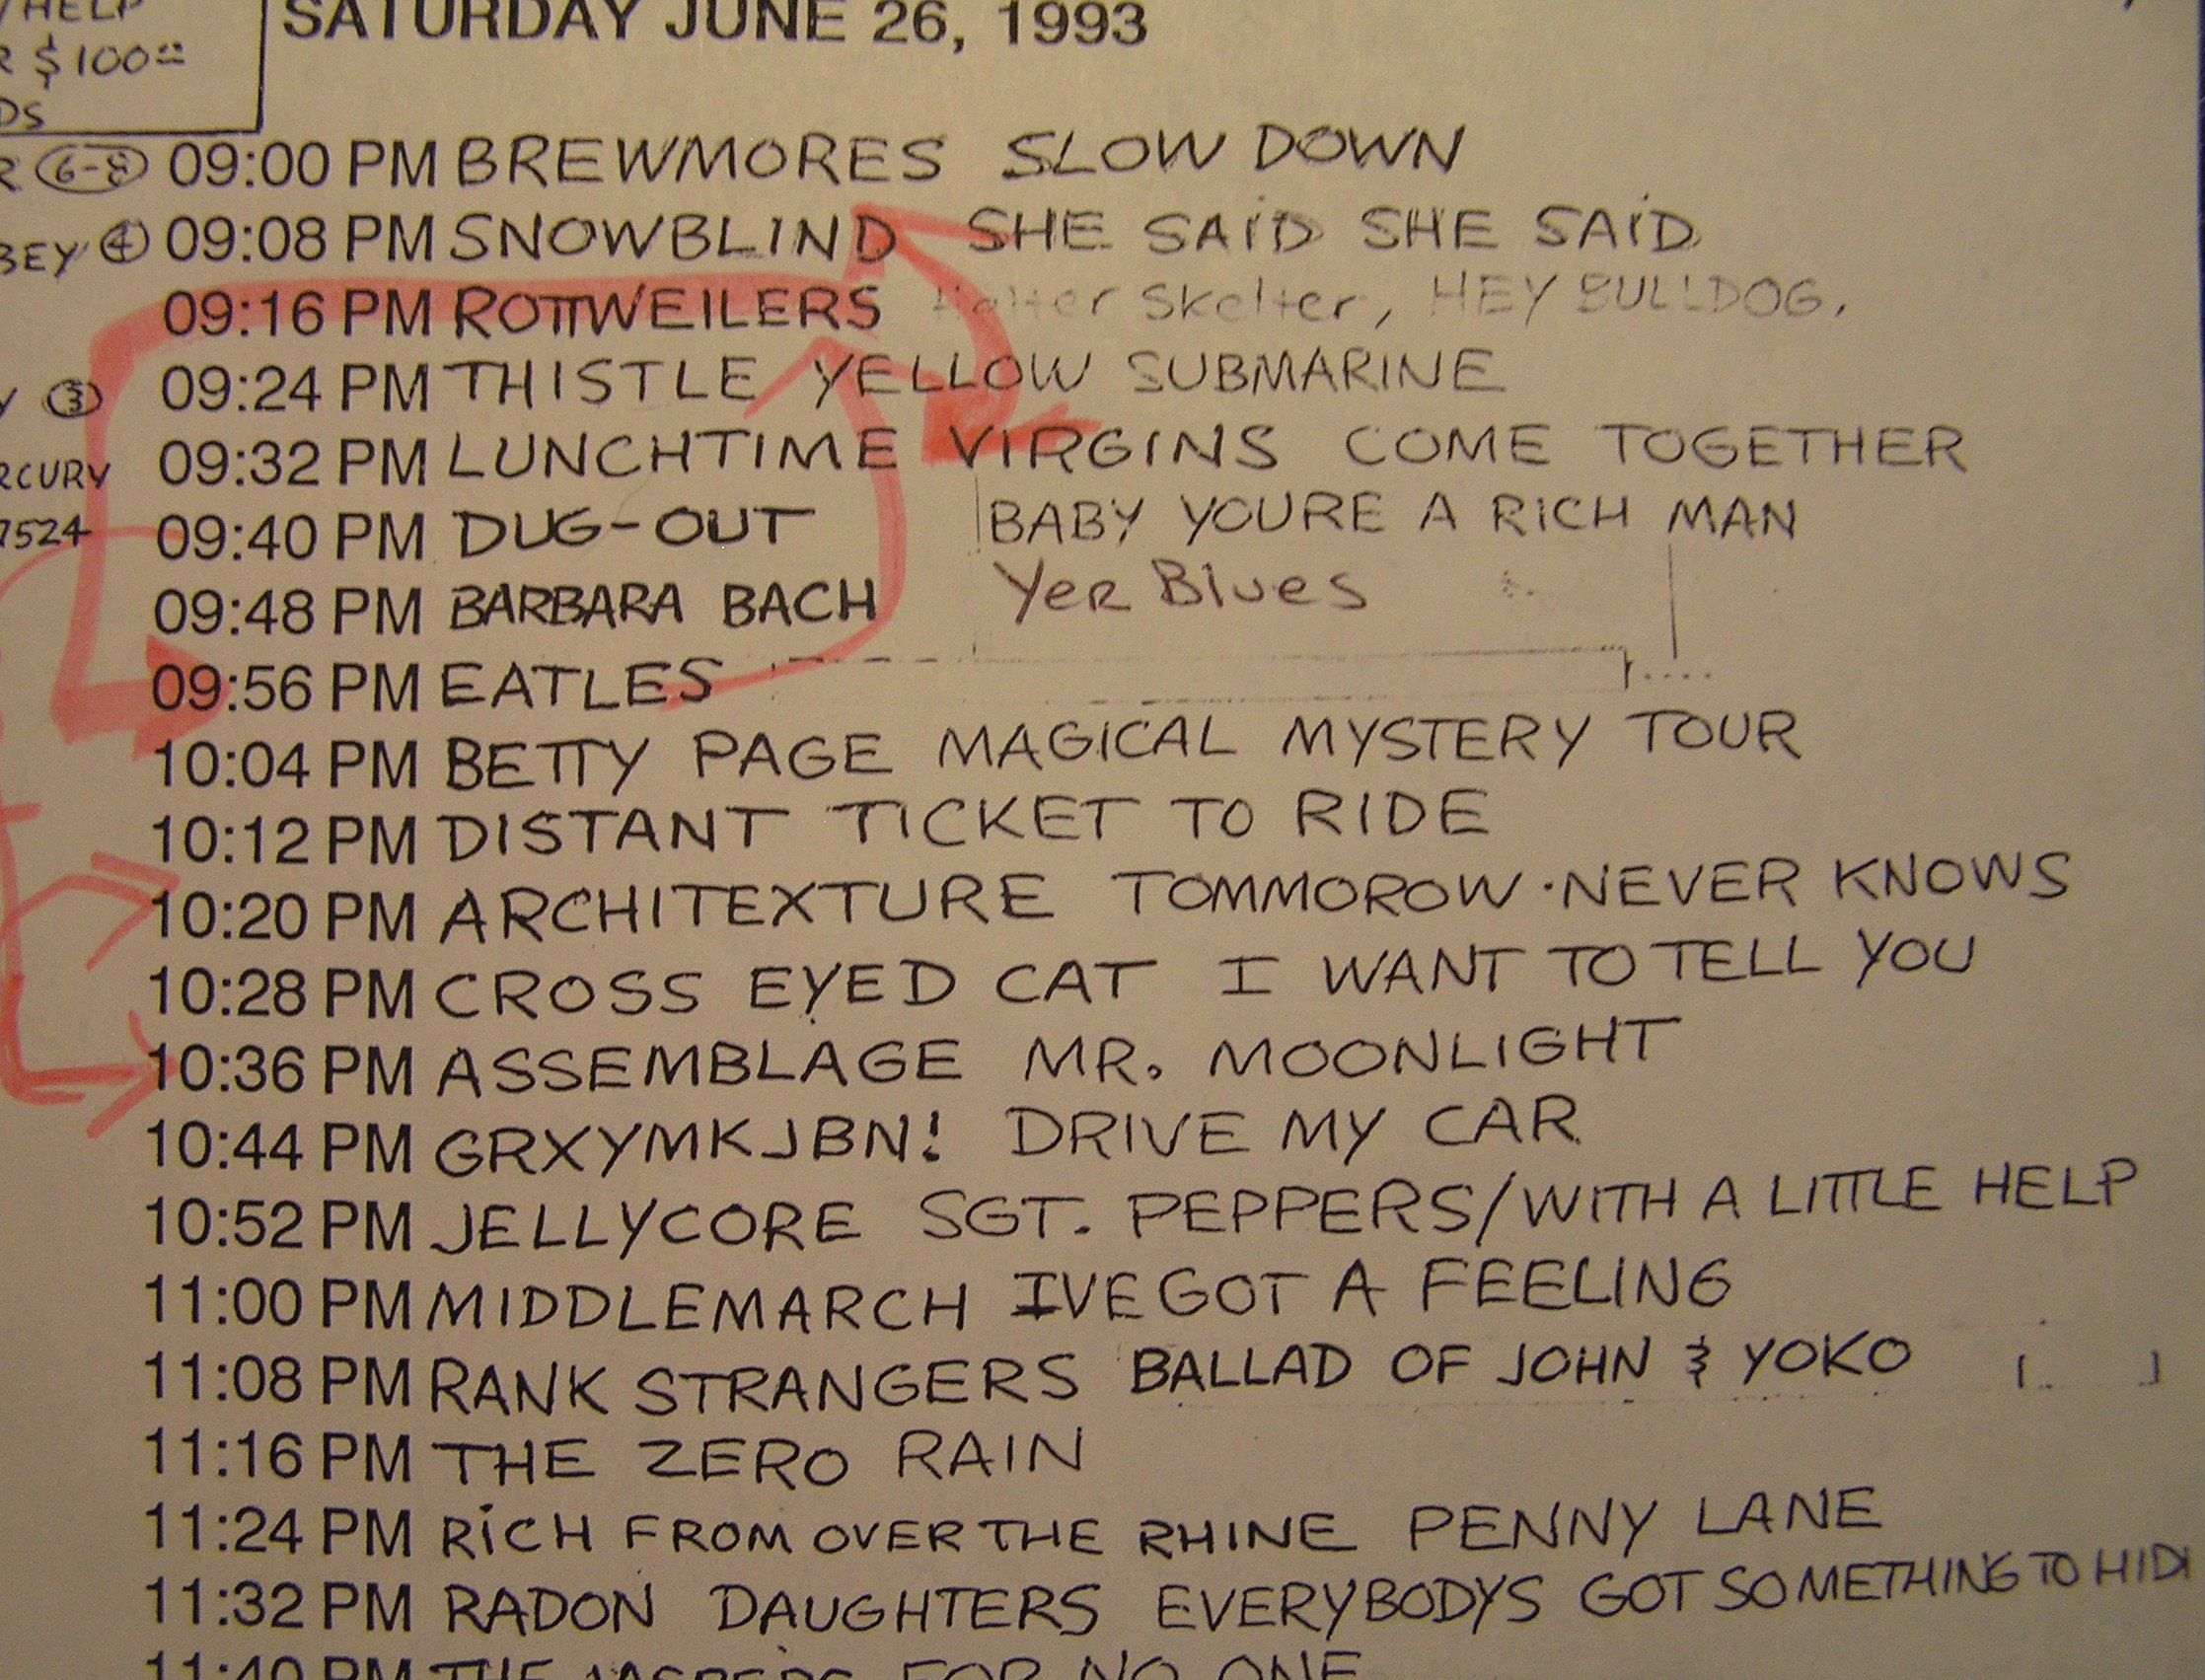 HELP
SATURDAY JUNE 26, 1993
$100
DS
R 6-8 09:00 PM BREWMORES SLOW DOWN
BEY 4 09:08 PM SNOWBLIND SHE SAID SHE SAID
09:16 PM ROTTWEILERS Skelter, HEY BULLDOG,
Y 3 09:24 PM THISTLE YELLOW SUBMARINE
RCURY 09:32 PM LUNCHTIME VIRGINS COME TOGETHER
7524 09:40 PM DUG-OUT BABY YOURE A RICH MAN
09:48 PM BARBARA BACH Yer Blues
09:56 PM EATLES
10:04 PM BETTY PAGE MAGICAL MYSTERY TOUR
10:12 PM DISTANT TICKET TO RIDE
10:20 PM ARCHITEXTURE TOMMOROW · NEVER KNOWS
10:28 PM CROSS EYED CAT I WANT TO TELL YOU
10:36 PM ASSEMBLAGE MR. MOONLIGHT
10:44 PM GRXYMKJBN! DRIVE MY CAR
10:52 PM JELLYCORE SGT. PEPPERS/WITH A LITTLE HELP
11:00 PM MIDDLEMARCH IVE GOT A FEELING
11:08 PM RANK STRANGERS BALLAD OF JOHN & YOKO
11:16 PM THE ZERO RAIN
11:24 PM RICH FROM OVER THE RHINE PENNY LANE
11:32 PM RADON DAUGHTERS EVERYBODYS GOT SOMETHING TO HID
11:40 PM THE JASPERS FOR NO ONE